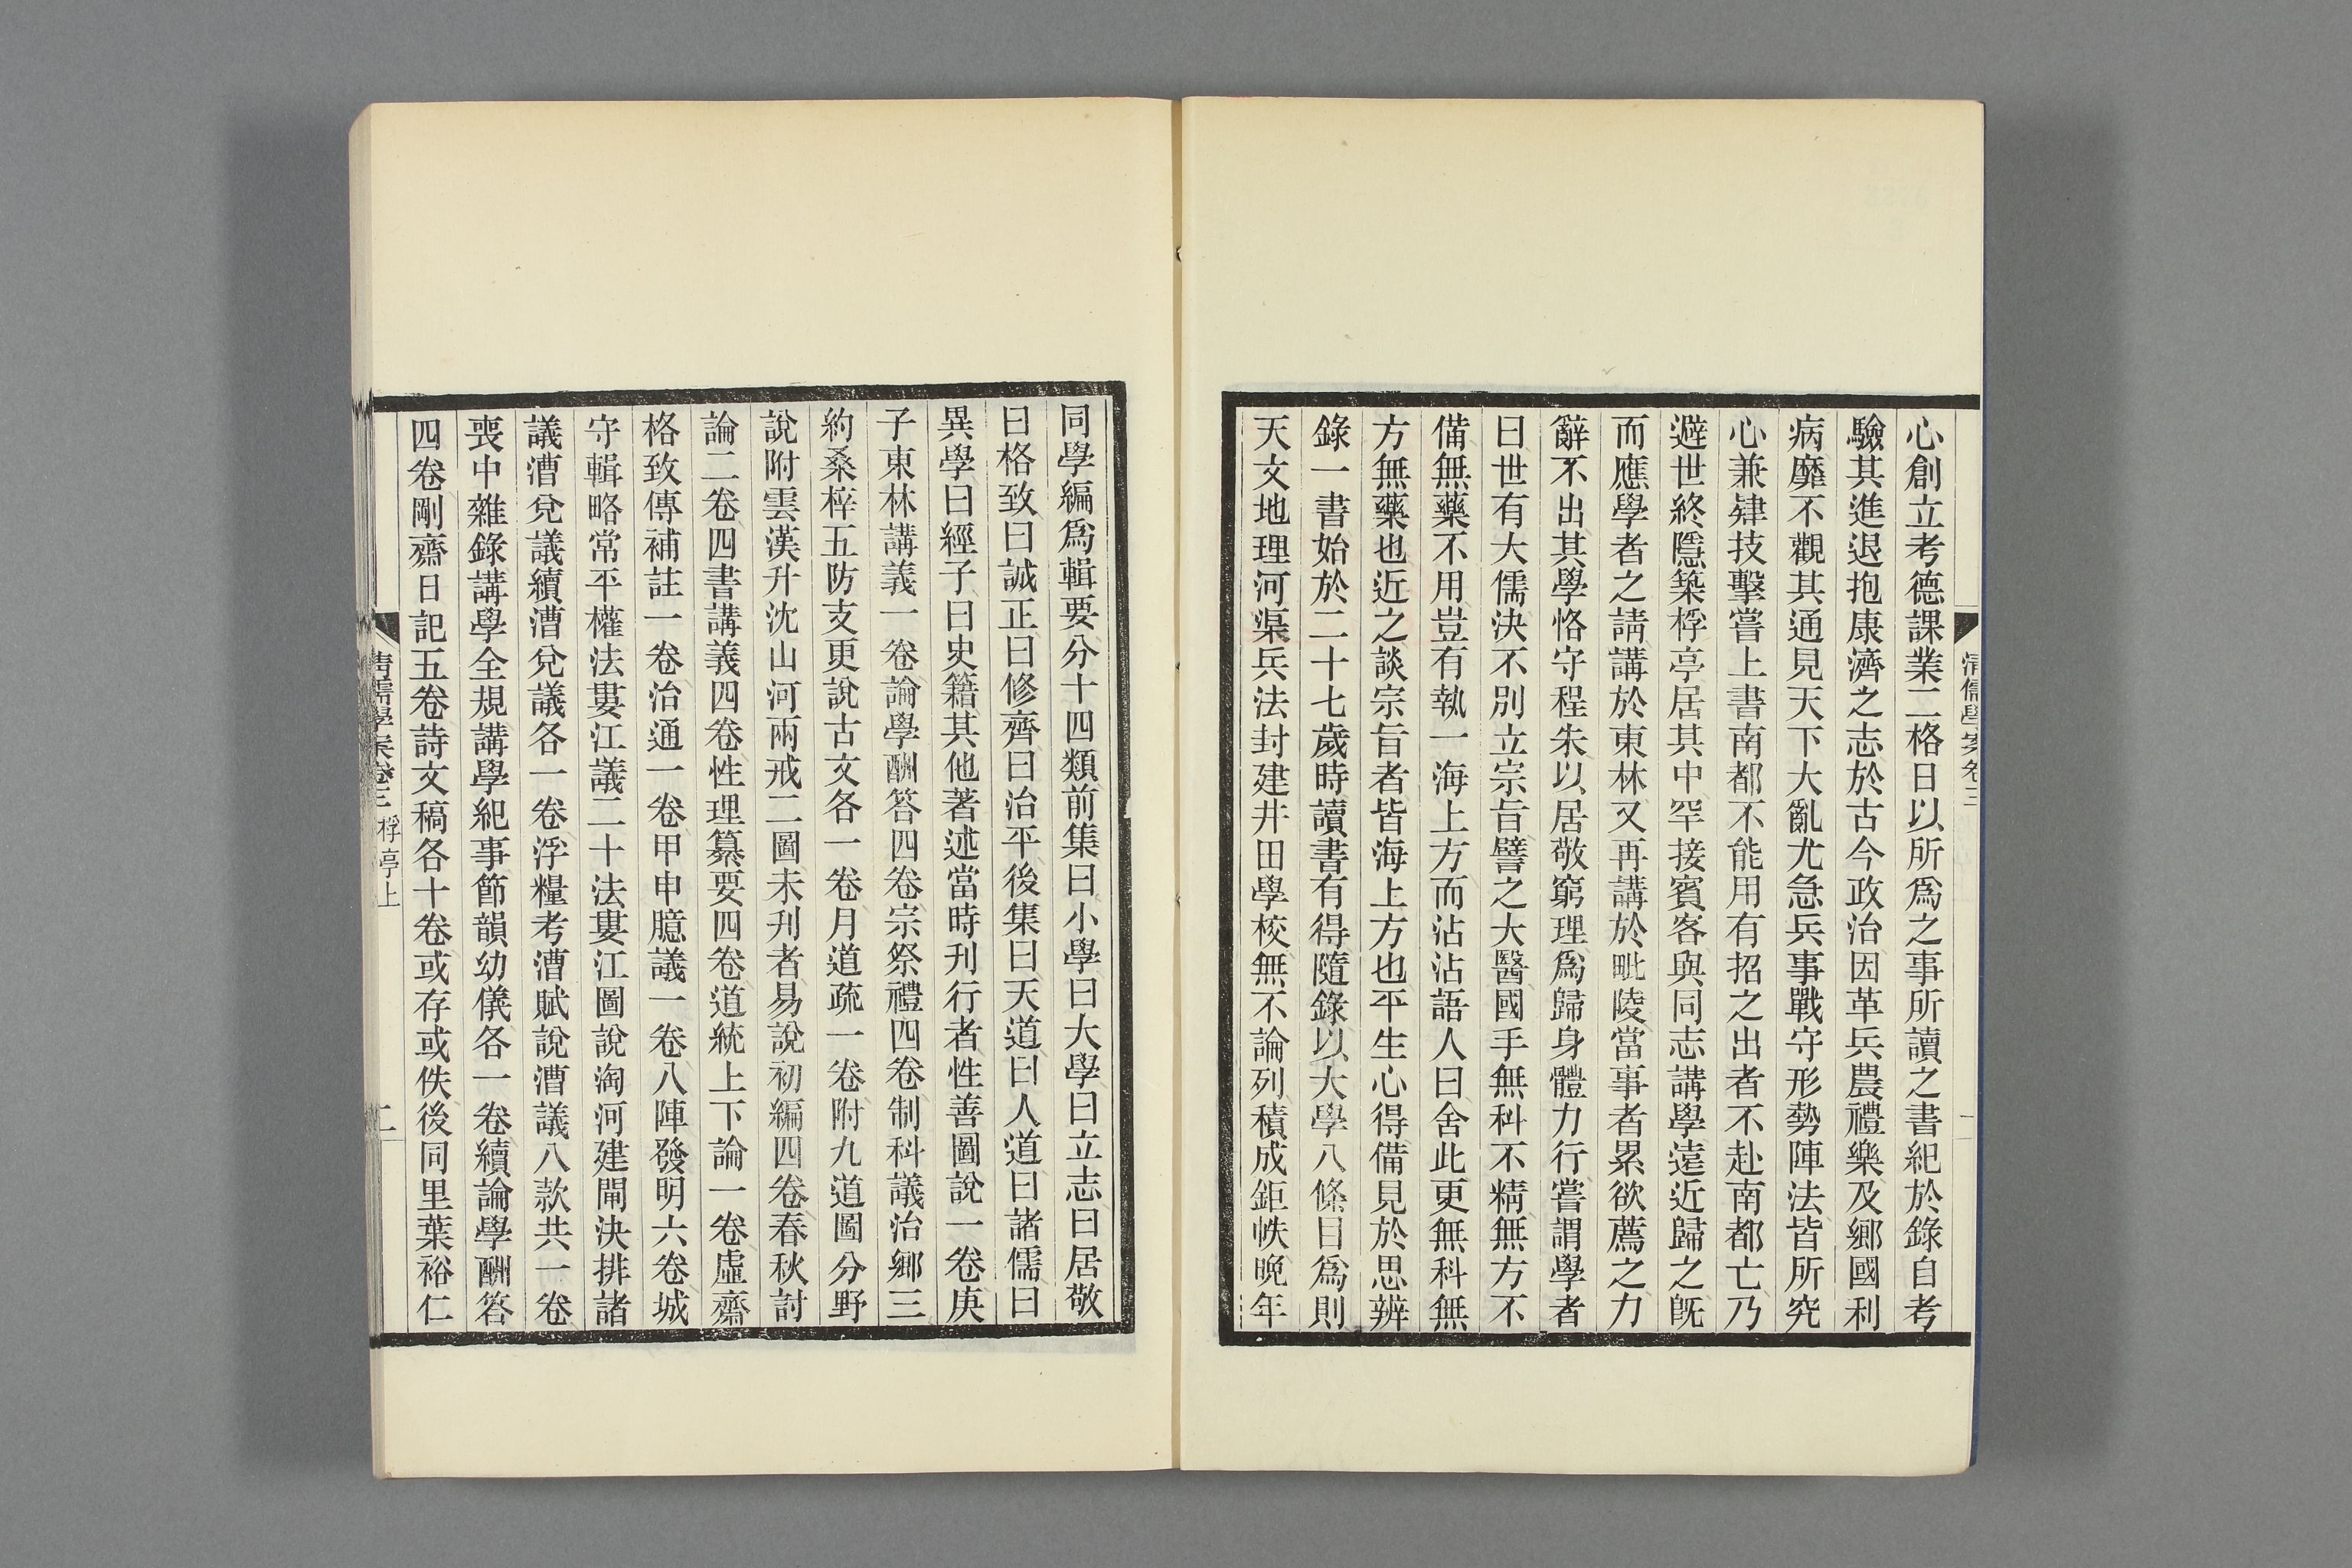 清儒學案卷三
一
心創立考德課業二格日以所爲之事所讀之書紀於錄自考
驗其進退抱康濟之志於古今政治因革兵農禮樂及鄉國利
病靡不觀其通見天下大亂尤急兵事戰守形勢陣法皆所究
心兼肄技擊嘗上書南都不能用有招之出者不赴南都亡乃
避世終隱築桴亭居其中罕接賓客與同志講學遠近歸之旣
而應學者之請講於東林又再講於毗陵當事者累欲薦之力
辭不出其學恪守程朱以居敬窮理爲歸身體力行嘗謂學者
曰世有大儒決不別立宗旨譬之大醫國手無科不精無方不
備無藥不用豈有執一海上方而沾沾語人曰舍此更無科無
方無藥也近之談宗旨者皆海上方也平生心得備見於思辨
錄一書始於二十七歲時讀書有得隨錄以大學八條目爲則
天文地理河渠兵法封建井田學校無不論列積成鉅帙晚年
同學編爲輯要分十四類前集曰小學曰大學曰立志曰居敬
曰格致曰誠正曰修齊曰治平後集曰天道曰人道曰諸儒曰
異學曰經子曰史籍其他著述當時刊行者性善圖說一卷庚
子東林講義一卷論學酬答四卷宗祭禮四卷制科議治鄉三
約桑梓五防支更說古文各一卷月道疏一卷附九道圖分野
說附雲漢升沈山河兩戒二圖未刋者易說初編四卷春秋討
論二卷四書講義四卷性理纂要四卷道統上下論一卷虛齋
格致傳補註一卷治通一卷甲申臆議一卷八陣發明六卷城
守輯略常平權法婁江議二十法婁江圖說淘河建閘決排諸
議漕兌議續漕兌議各一卷浮糧考漕賦說漕議八款共一卷
喪中雜錄講學全規講學紀事節韻幼儀各一卷續論學酬答
四卷剛齋日記五卷詩文稿各十卷或存或佚後同里葉裕仁
清儒學案卷三 桴亭上
二